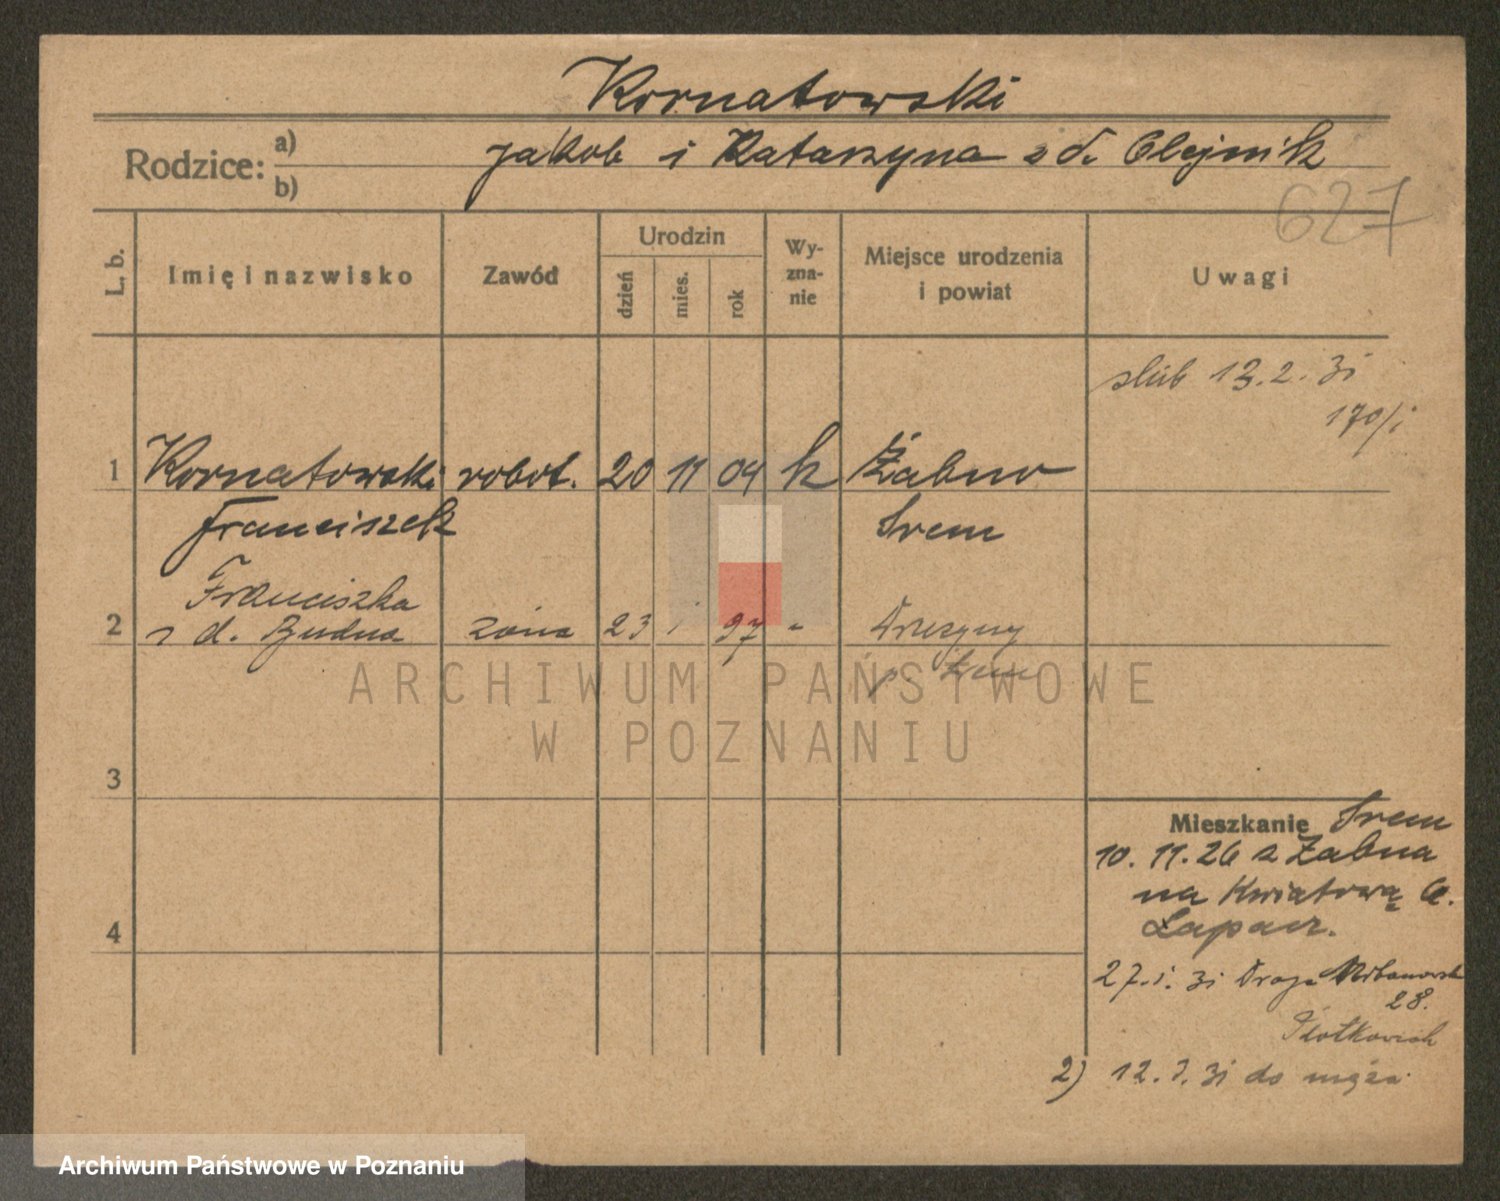 Kornatowski
Rodzice: a) b)
Jakob i Katarzyna z d. Olejnik
627
L. b.
Imię i nazwisko
Zawód
Urodzin
dzień
mies.
rok
Wy-
zna-
nie
Miejsce urodzenia
i powiat
Uwagi
ślub 13.2.31
170/i
1 Kornatowski robot. 20 11 04 k Żabno
Franciszek Śrem
Franciszka
2 z d. Budna żona 23 i 97 -
p. Śrem
ARCHIWUM PAŃSTWOWE
W POZNANIU
3
Mieszkanie Śrem
10.11.26 z Żabna
4 na Kwiatową 6.
Łapacz.
27.i.31 Droga Urbanowska
28.
2) 12.3.31 do męża
Archiwum Państwowe w Poznaniu